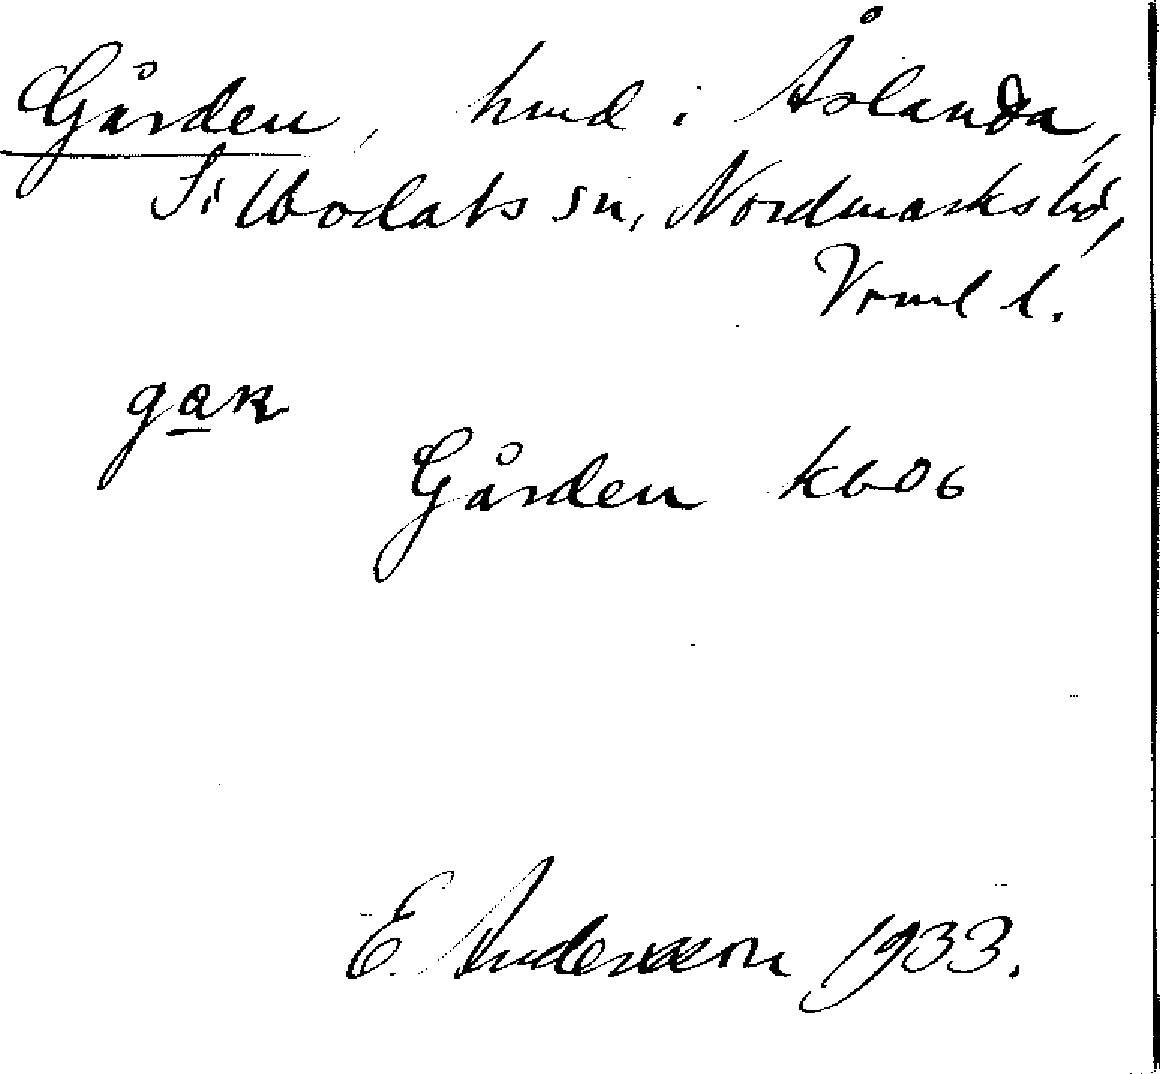 Gården, hmd i Åslanda,
Silbodals sn, Nordmarks hd,
Vrml l.
gaɳ
Gården kb06
E. Andersson 1933.